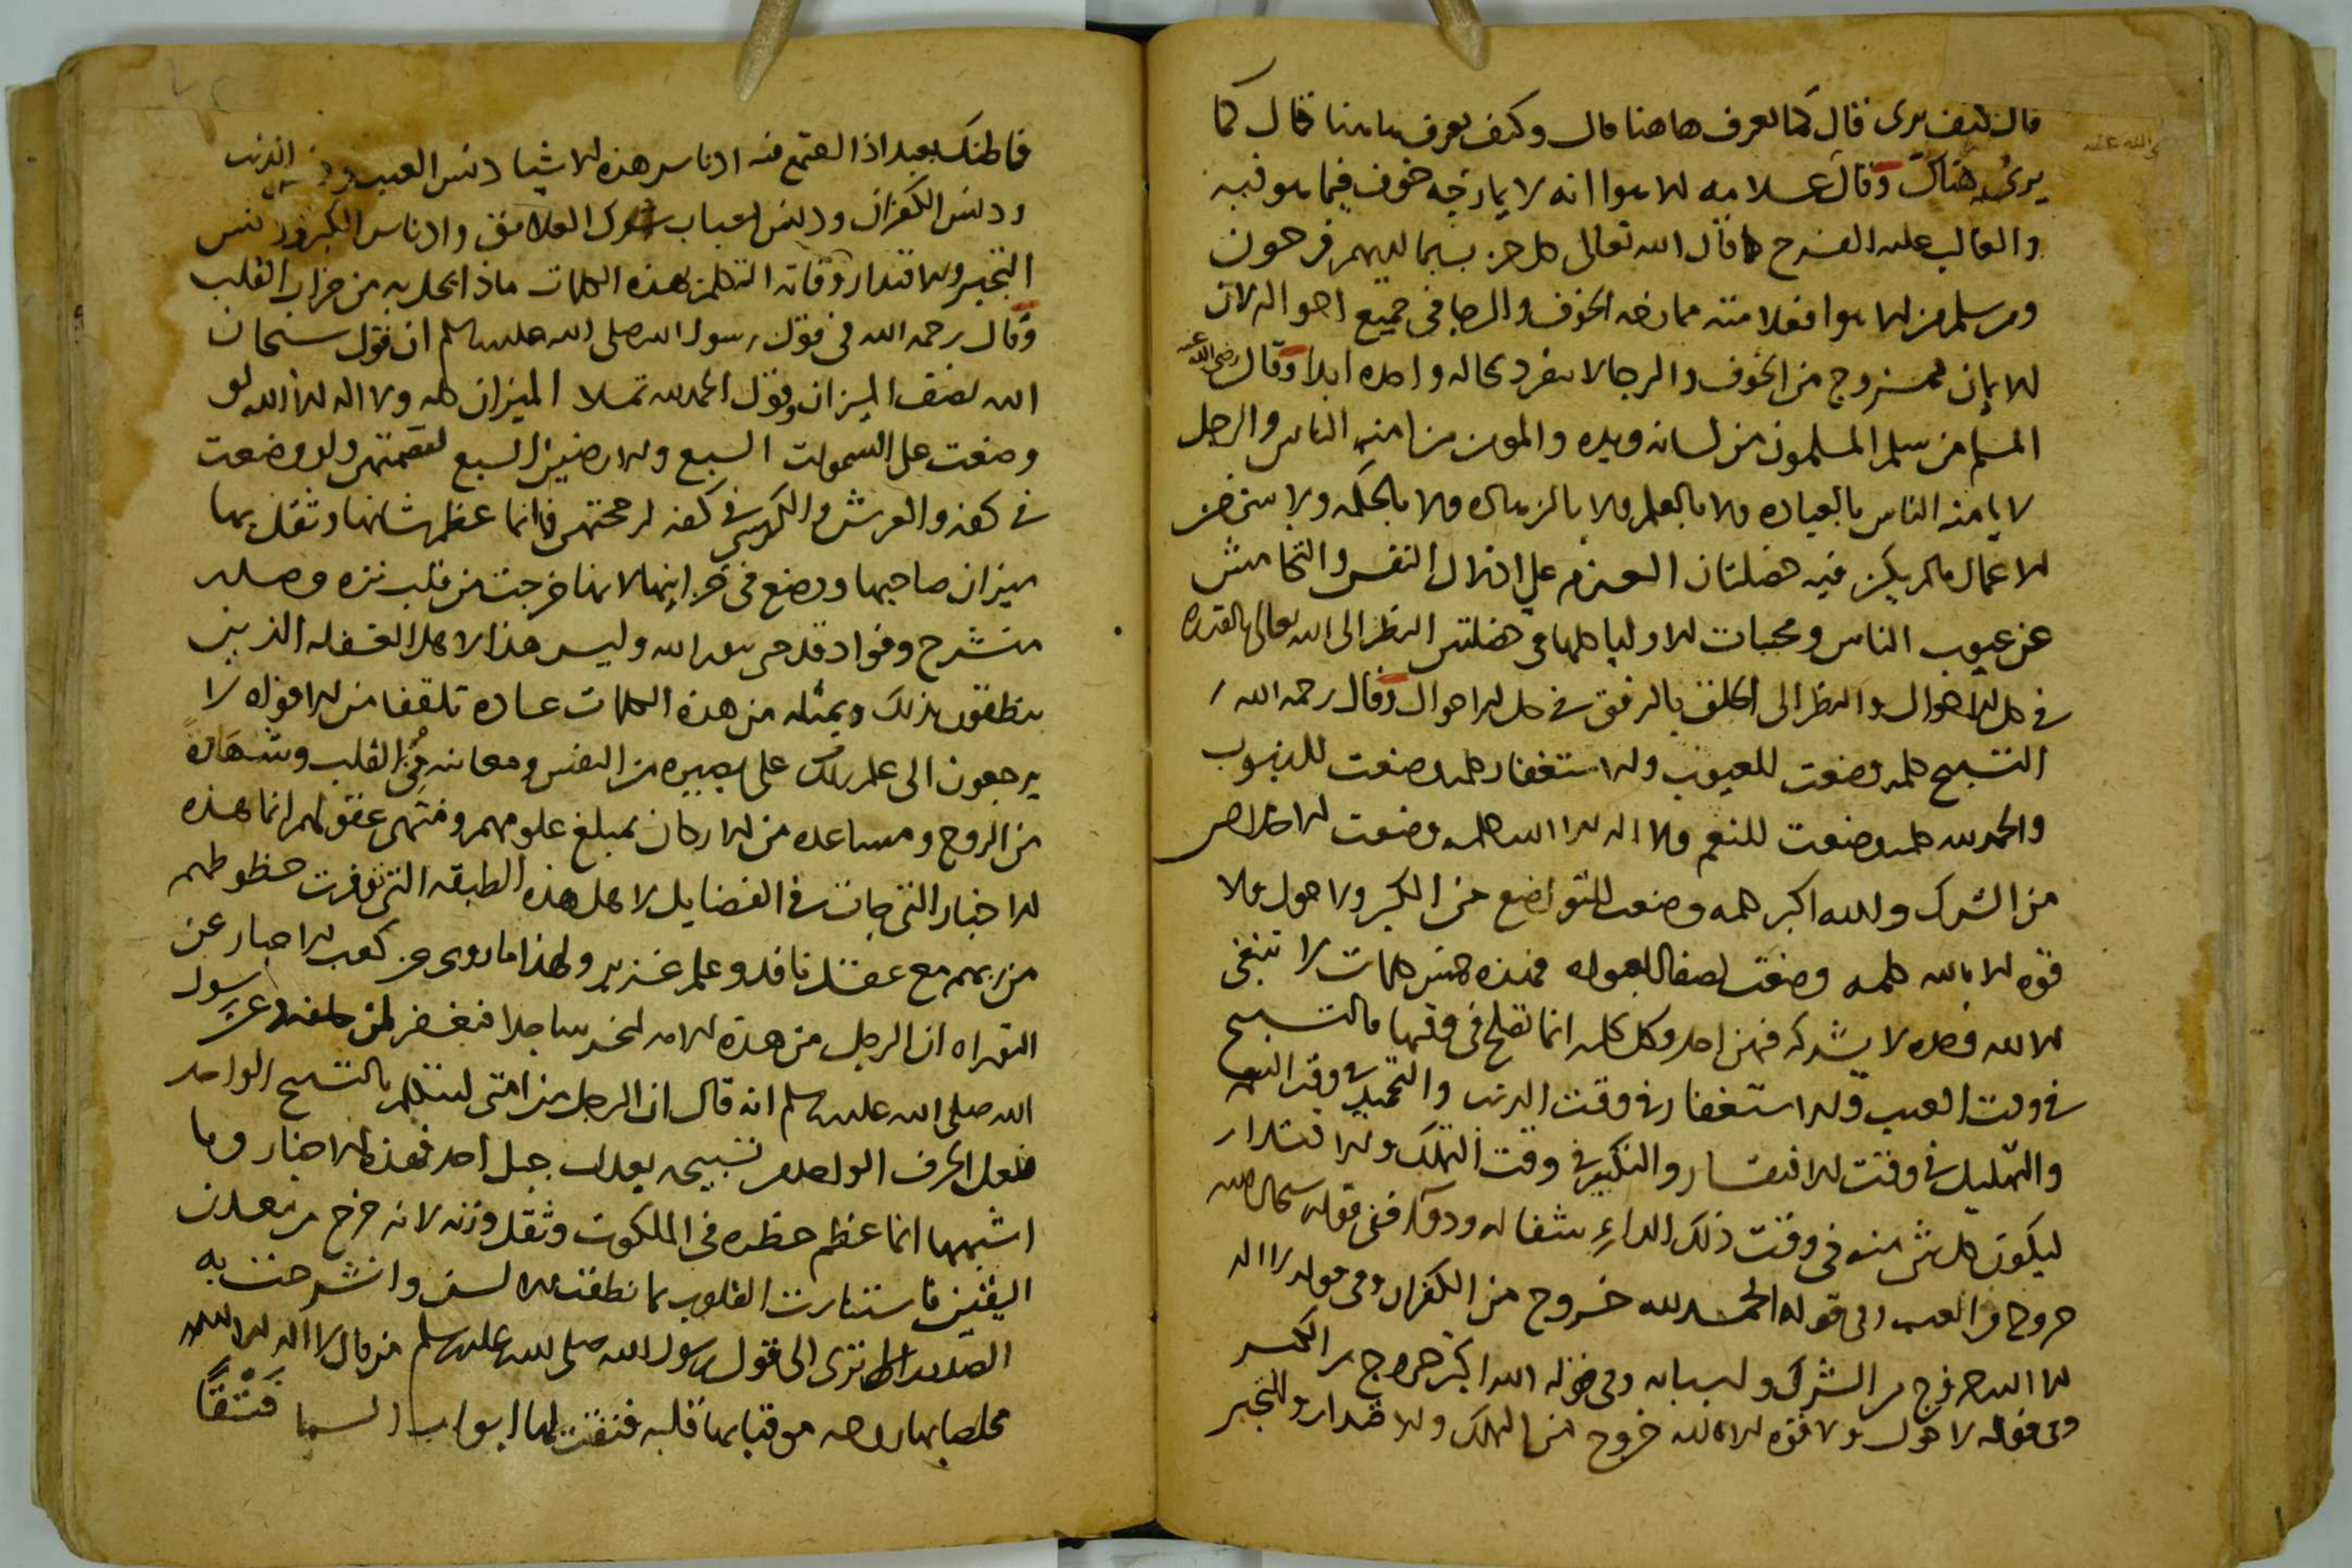 قال كيف يرى قال كما لعرف هاهنا قال وكيف يعرف هاهنا قال كما
يرى هناك وقال علامه الاهوا انه لا يمازجه خوف فيما هو فيه
والغالب عليه الفرح كما قال الله تعالى كل حزب بما لديهم فرحون
ومن سلم من الاهوا فعلامته ممازجه الخوف والرجا في جميع احواله لان
الايمان ممزوج من الخوف والرجا لا ينفرد بحاله واحده ابدا وقال رضي الله عنه
المسلم من سلم المسلمون من لسانه ويده والمومن من امنه الناس والرجل
لا يامنه الناس بالعباده ولا بالعلم ولا بالزهاده ولا بالحكمه ولا
الاعمال مالم يكن فيه خصلتان العزم على اذلال النفس والتحامش
عن عيوب الناس ومحبات الاوليا كلها في خصلتين النظر الى الله تعالى بالقدره
في كل الاحوال والنظر الى الخلق بالرفق في كل الاحوال وقال رحمه الله
التسبيح كلمه وضعت للعيوب والاستغفار كلمه وضعت للذنوب
والحمد لله كلمه وضعت للنعم ولا اله الا الله كلمه وضعت الاخلاص
من الشرك والله اكبر كلمه وضعت للتواضع من الكبر ولا حول ولا
قوه الا بالله كلمه وضعت فهذه خمس كلمات لا تنبغي
الا لله وحده لا يشركه فيهن احد وكل كلمه انما تصلح في وقتها فالتسبيح
في وقت العيب والاستغفار في وقت الذنب والتحميد في وقت النعمه
والتهليل في وقت الافتقار والتكبير في وقت التملك والاقتدار
ليكون كل شي منه في وقت ذلك الداءِ شفا له ودوآ ففي قوله سبحان الله
خروجا من العيب وفي قوله الحمد لله خروج من الكفران وفي قوله لا اله
الا الله خروج من الشرك وفي قوله الله اكبر خروج من الكبر
وفي قوله لا حول ولا قوه الا بالله خروج من التملك والاقتدار والتجبر
فاظنك بعبد اذا اجتمع فيه ادناس هذه الاشيا دنس العيب الذنب
ودنس الكفران ودنس العلايق وادناس الكبر ودنس
التجبر والاقتدار وفاته التكلم بهذه الكلمات ماذا يحل به من خراب القلب
وقال رحمه الله في قول رسول الله صلى الله عليه وسلم ان قول سبحان
الله نصف الميزان وقول الحمد لله تملا الميزان كله ولا اله الا الله لو
وضعت على السموات السبع والارضين السبع لقصمتهن ولو وضعت
في كفه والعرش والكرسي في كفه لرجحتهن فانما عظم شانها وثقل بها
ميزان صاحبها ووضع في لانها خرجت من قلب نزه وصدر
منشرح وفواد قد حي بنور الله وليس هذا لاهل الغفله الذين
ينطقون بذلك وبمثله من هذه الكلمات عاده تلقفا من الافواه لا
يرجعون الى علم ذلك على بصيره من النفس ومعاينه من القلب وشهادةً
من الروح ومساعده من الاركان بمبلغ علومهم ومنتهى عقولهم انما هذه
الاخبار التي جات في الفضايل لاهل هذه الطبقه التي توفرت حظوظهم
من ربهم مع عقل نافد وعلم غزير ولهذا ما روى عن كعب الاحبار عن
التوراه ان الرجل من هذه الامه ليخر ساجدا فيغفر لمن خلفه وعن رسول
الله صلى الله عليه وسلم انه قال ان الرجل من امتي ليتكلم بالتسبيح الواحد
الحرف الواحد من تسبيحه يعدل جبل احد فهذه الاخبار وما
اشبهها انما عظم خطره في الملكوت وثقل وزنه لانه خرج من معدن
اليقين فاستنارت القلوب بما نطقت به الالسن وانشرحت به
الصدور الا ترى الى قول رسول الله صلى الله عليه وسلم من قال لا اله الا الله
مخلصا بها روحه موقنا بها قلبه فتقت لها ابواب السما فَتْقًا